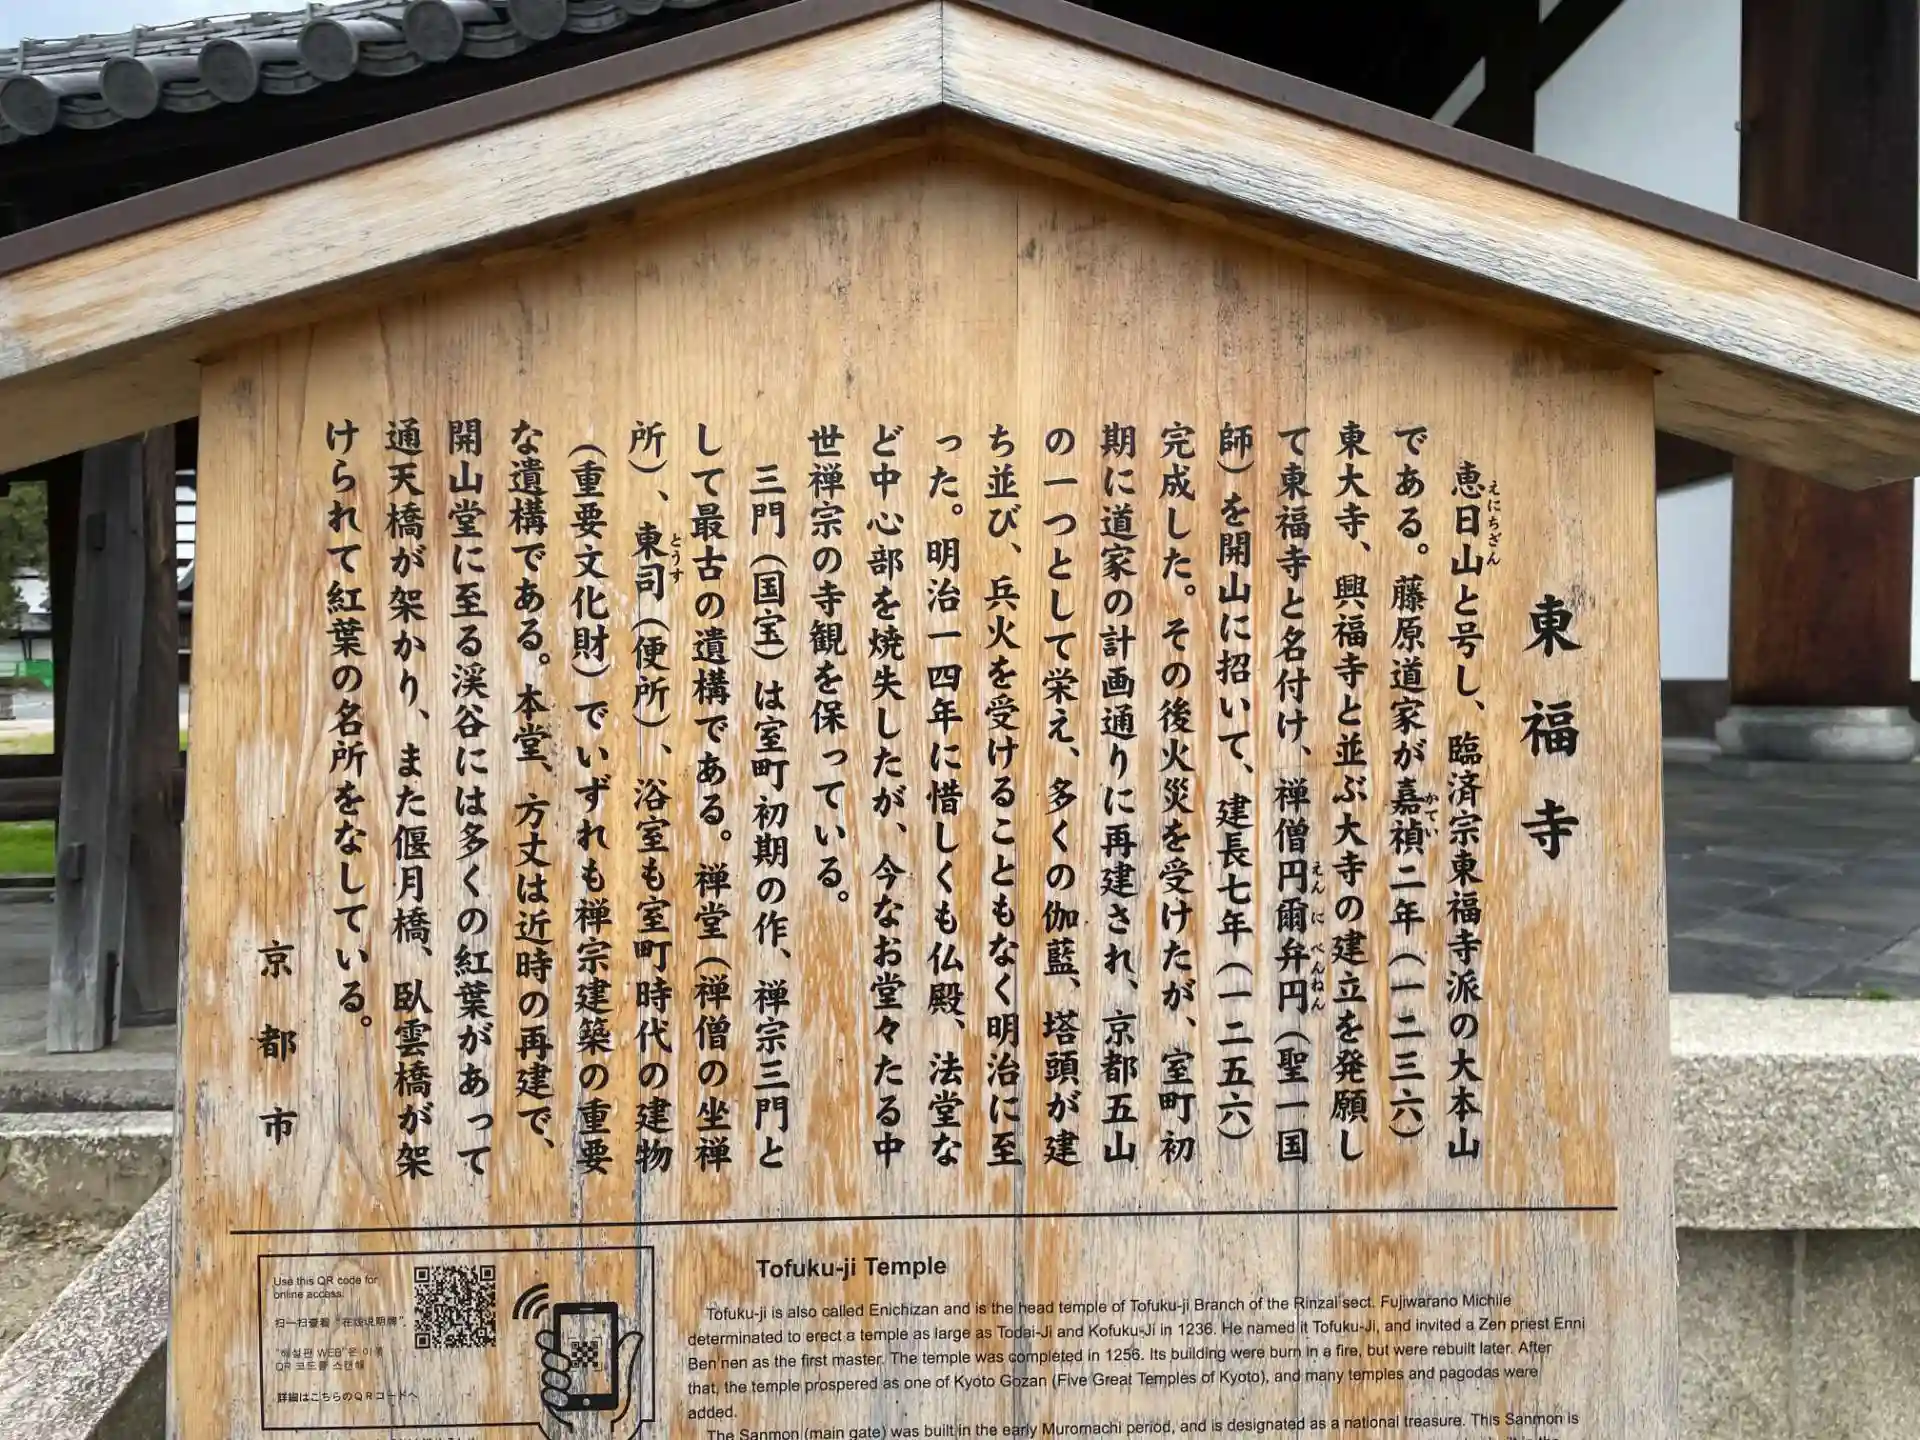 東福寺
恵日山と号し、臨済宗東福寺派の大本山
えにちざん
である。藤原道家が嘉禎二年（一二三六）
かてい
東大寺、興福寺と並ぶ大寺の建立を発願し
て東福寺と名付け、禅僧円爾弁円（聖一国
えんにべんねん
師）を開山に招いて、建長七年（一二五六）
完成した。その後火災を受けたが、室町初
期に道家の計画通りに再建され、京都五山
の一つとして栄え、多くの伽藍、塔頭が建
ち並び、兵火を受けることもなく明治に至
った。明治一四年に惜しくも仏殿、法堂な
ど中心部を焼失したが、今なお堂々たる中
世禅宗の寺観を保っている。
三門（国宝）は室町初期の作、禅宗三門と
して最古の遺構である。禅堂（禅僧の坐禅
所）、東司（便所）、浴室も室町時代の建物
とうす
（重要文化財）でいずれも禅宗建築の重要
な遺構である。本堂、方丈は近時の再建で、
開山堂に至る渓谷には多くの紅葉があって
通天橋が架かり、また偃月橋、臥雲橋が架
けられて紅葉の名所をなしている。
京都市
Use this QR code for
online access.
扫一扫查看 "在线说明牌".
"해설판 WEB"은 이쪽
QR 코드를 스캔해
詳細はこちらのQRコードへ
Tofuku-ji Temple
Tofuku-ji is also called Enichizan and is the head temple of Tofuku-ji Branch of the Rinzai sect. Fujiwarano Michiie
determinated to erect a temple as large as Todai-Ji and Kofuku-Ji in 1236. He named it Tofuku-Ji, and invited a Zen priest Enni
Ben'nen as the first master. The temple was completed in 1256. Its building were burn in a fire, but were rebuilt later. After
that, the temple prospered as one of Kyoto Gozan (Five Great Temples of Kyoto), and many temples and pagodas were
added.
The Sanmon (main gate) was built in the early Muromachi period, and is designated as a national treasure. This Sanmon is